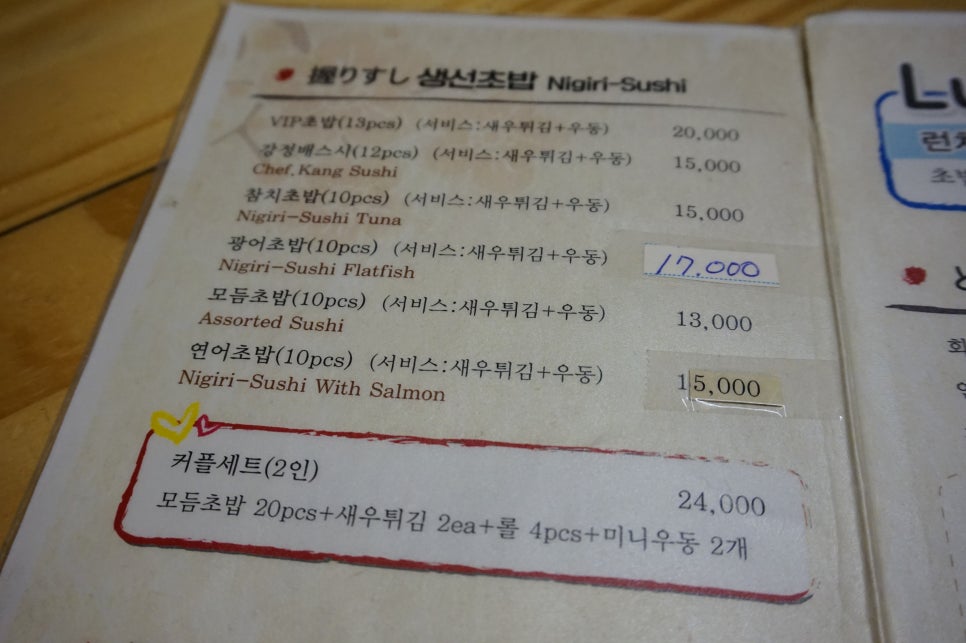 握りすし 생선초밥 Nigiri-Sushi
VIP초밥(13pcs) (서비스:새우튀김+우동) 20,000
강정배스시(12pcs) (서비스:새우튀김+우동) 15,000
Chef.Kang Sushi
참치초밥(10pcs) (서비스:새우튀김+우동) 15,000
Nigiri-Sushi Tuna
광어초밥(10pcs) (서비스:새우튀김+우동) 17.000
Nigiri-Sushi Flatfish
모듬초밥(10pcs) (서비스:새우튀김+우동) 13,000
Assorted Sushi
연어초밥(10pcs) (서비스:새우튀김+우동) 15,000
Nigiri-Sushi With Salmon
커플세트(2인) 24,000
모듬초밥 20pcs+새우튀김 2ea+롤 4pcs+미니우동 2개